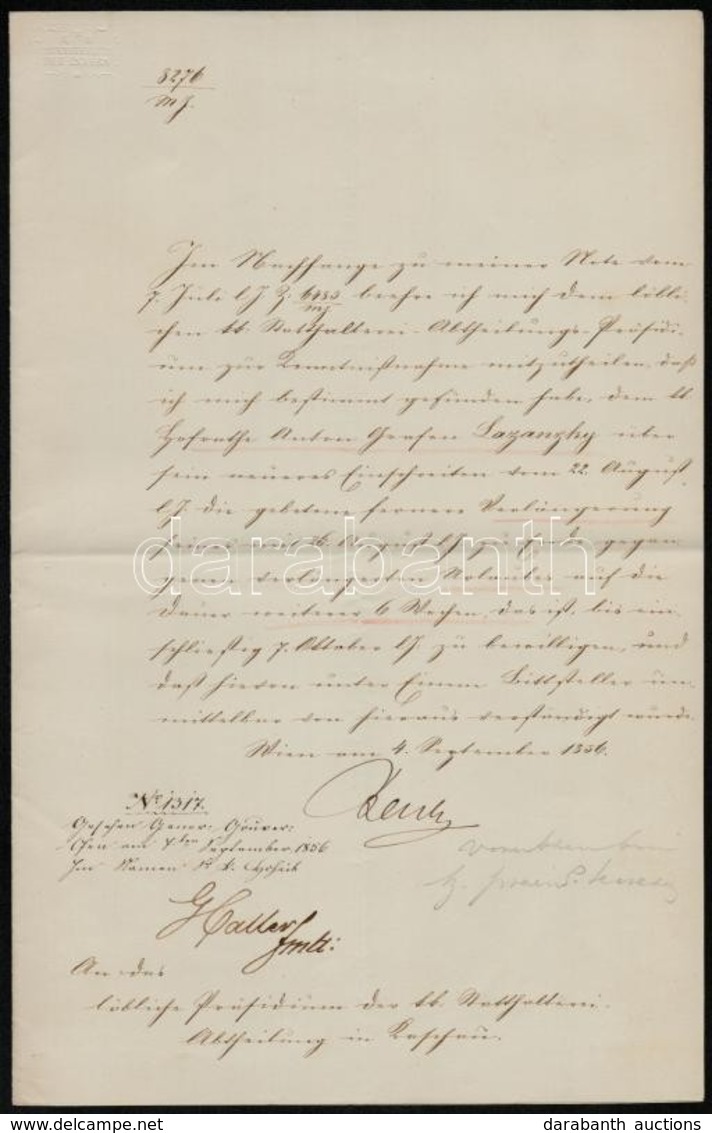 8276
MJ.
Im Nachhange zu meiner Note vom
7. Juli l.J. Z. 6485/MJ beehre ich mich dem löbli-
chen kk. Statthalterei-Abtheilungs-Präsidi-
um zur Kenntnißnahme mitzutheilen, daß
ich mich bestimmt gefunden habe, dem kk.
Hofrathe Anton Grafen Lazanzky über
sein neueres Einschreiten vom 22. August
l.J. die gebetene fernere Verlängerung
seines mit 26. August l.J. zu Ende gegan-
genen verlängerten Urlaubes auf die
Dauer weiterer 6 Wochen, das ist, bis ein-
schließig 7. Oktober l.J. zu bewilligen, und
daß hievon unter Einem Bittsteller un-
mittelbar von hieraus verständigt wurde.
Wien am 4. September 1856.
No 1317.
Gesehen Gener: Gouver:
Ofen am September 1856
Im Namen
Haller
fmlt:
An das
löbliche Präsidium der kk. Statthalterei-
Abtheilung in Kaschau.
darabanth
www.darabanth.com
darabanth auctions